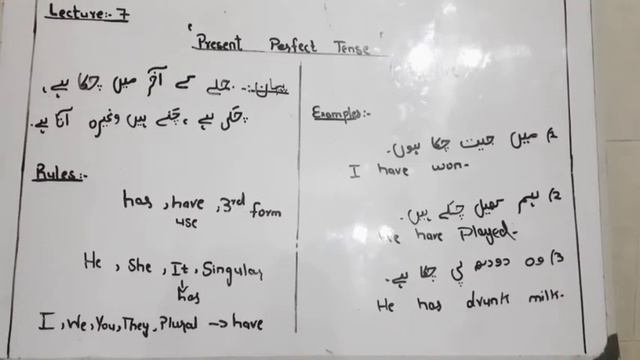 Lecture:- 7
"Present Perfect Tense"
پہچان:- جملے کے آخر میں چکا ہے،
چکی ہے، چکے ہیں وغیرہ آتا ہے۔
Rules:-
has, have, 3rd form
use
He, She, It, Singular
has
I, We, You, They, Plural → have
Examples:-
1) میں جیت چکا ہوں۔
I have won.
2) ہم کھیل چکے ہیں۔
We have Played.
3) وہ دودھ پی چکا ہے۔
He has drunk milk.